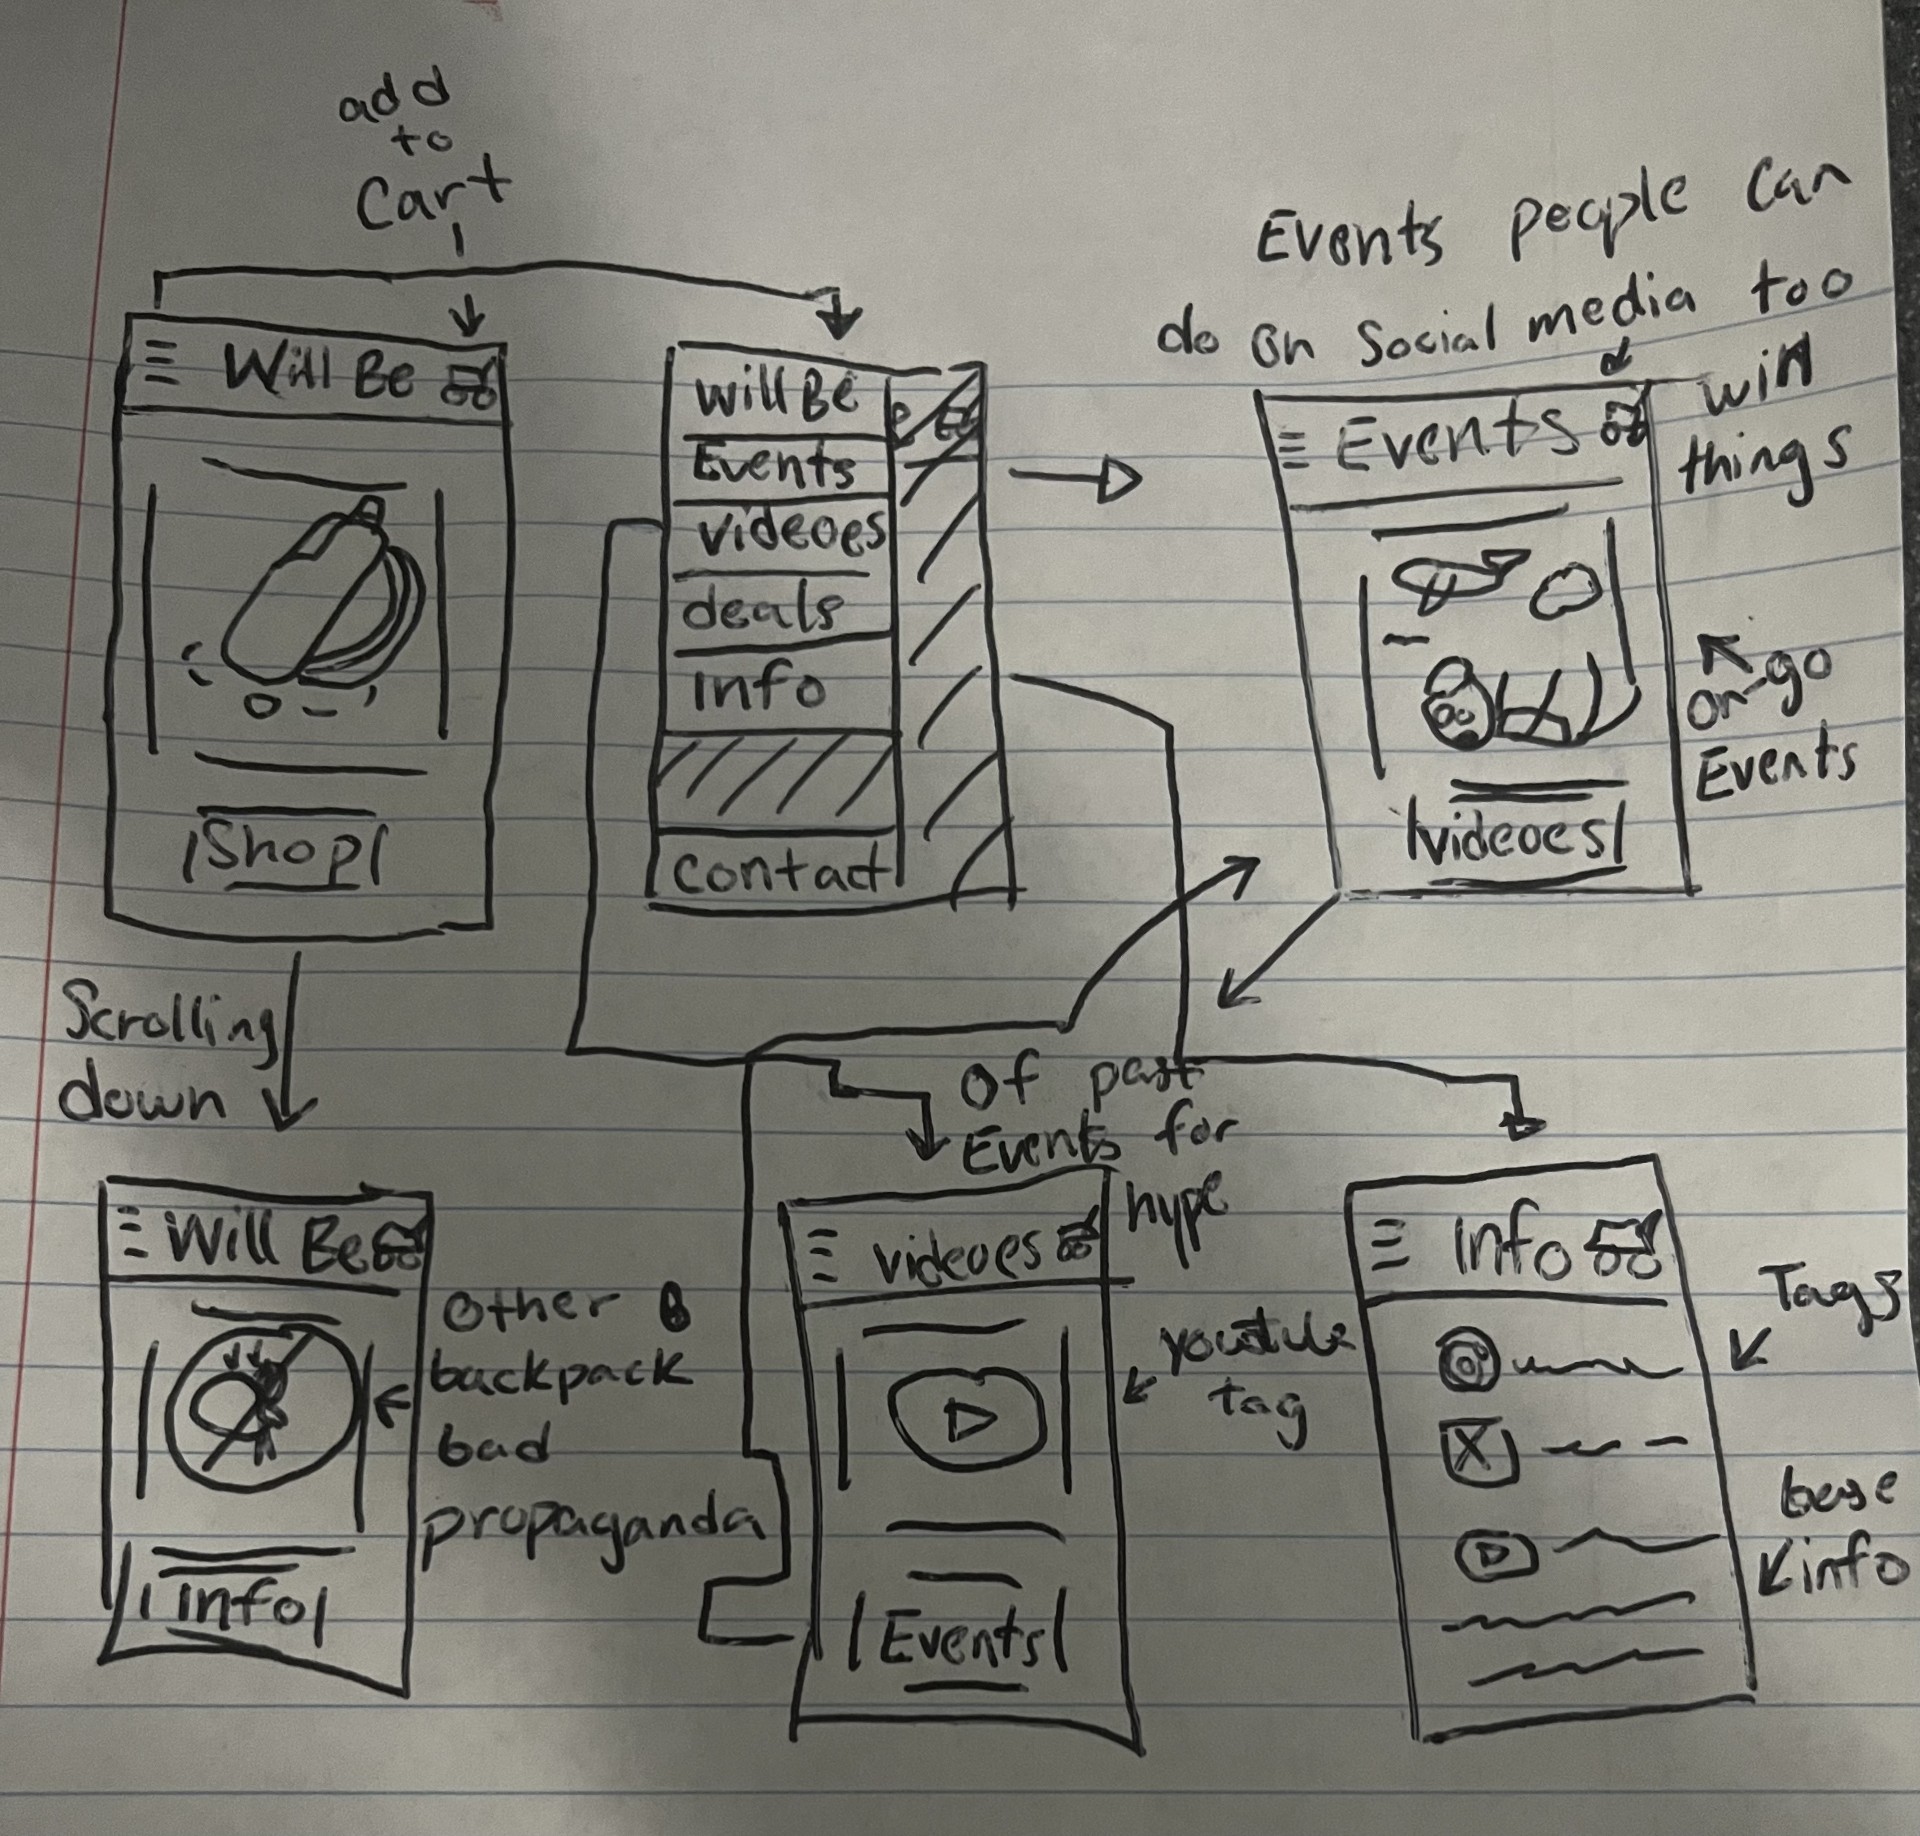 add
to
Cart
Will Be
Shop
Will Be
Events
videoes
deals
Info
contact
Events people can
do on Social media too
win
things
Events
on-go
Events
videoes
Scrolling
down
Will Be
Other
backpack
bad
propaganda
Info
Of past
Events for
hype
videoes
youtube
tag
Events
Info
Tags
X
base
info